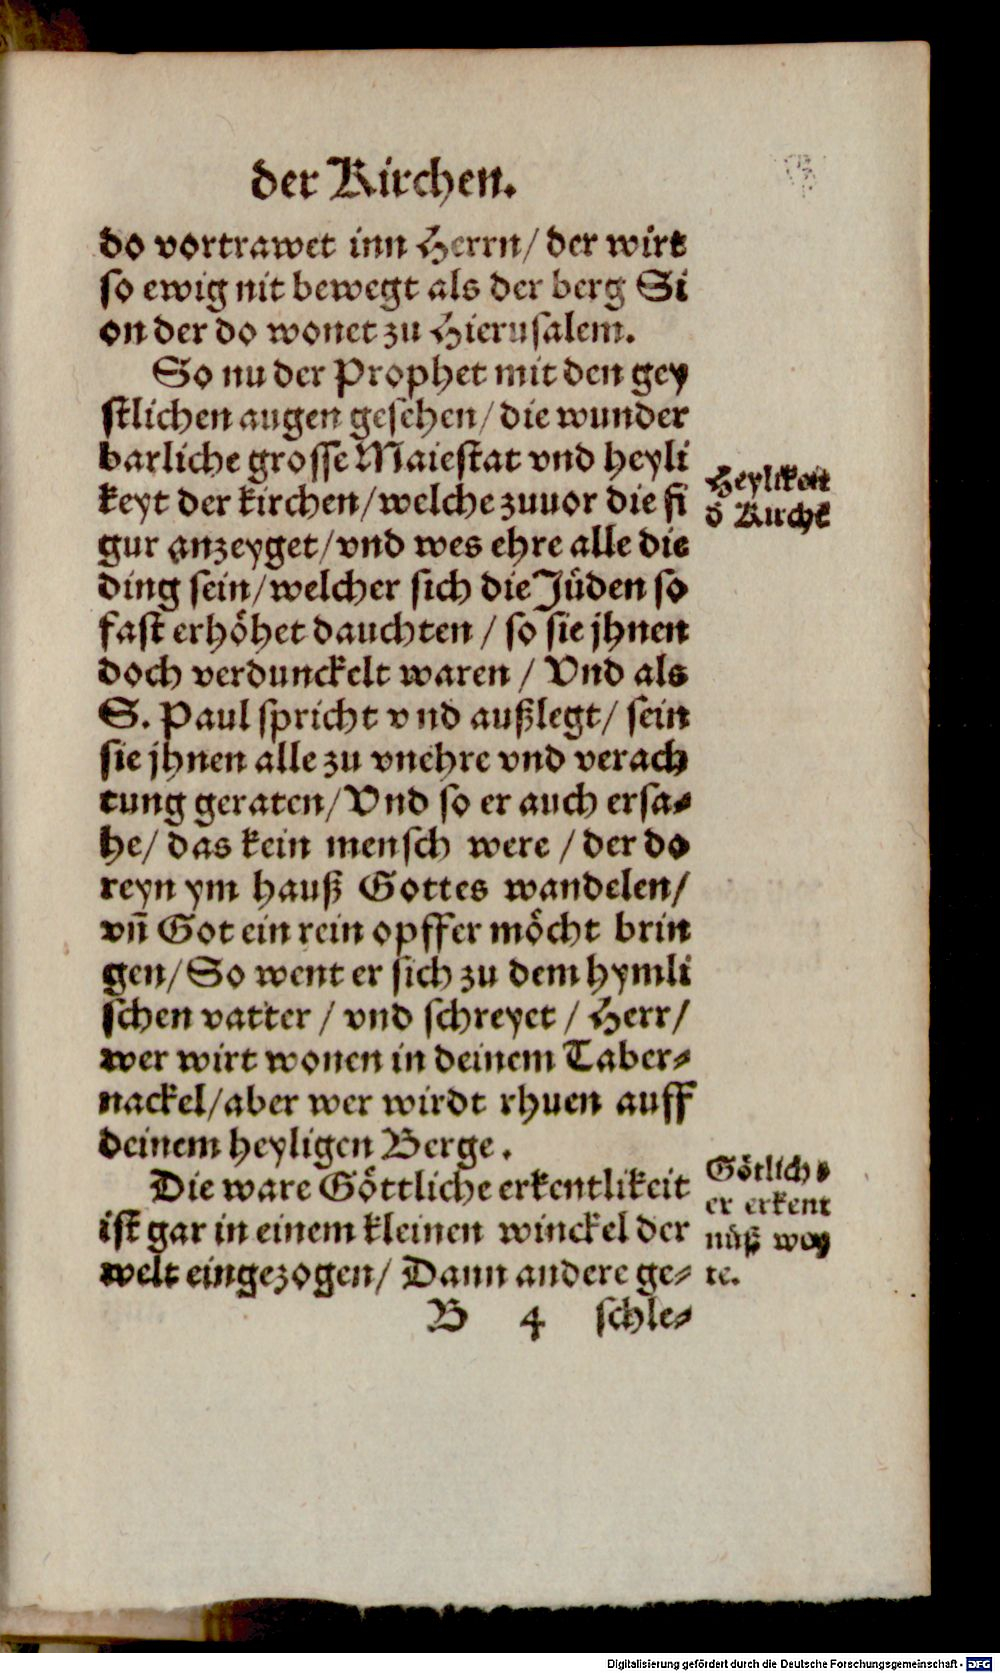 der Kirchen.
do vortrawet inn Herrn/ der wirt
so ewig nit bewegt als der berg Si
on der do wonet zu Hierusalem.
So nu der Prophet mit den gey
stlichen augen gesehen/ die wunder
barliche grosse Maiestat vnd heyli
keyt der kirchen/ welche zuuor die fi
gur anzeyget/ vnd wes ehre alle die
ding sein/ welcher sich die Jüden so
fast erhöhet dauchten / so sie jhnen
doch verdunckelt waren / Vnd als
S. Paul spricht vnd außlegt/ sein
sie jhnen alle zu vnehre vnd verach
tung geraten/ Vnd so er auch ersa-
he/ das kein mensch were / der do
reyn ym hauß Gottes wandelen/
vñ Got ein rein opffer möcht brin
gen/ So went er sich zu dem hymli
schen vatter / vnd schreyet / Herr/
wer wirt wonen in deinem Taber-
nackel/ aber wer wirdt rhuen auff
deinem heyligen Berge.
Die ware Göttliche erkentlikeit
ist gar in einem kleinen winckel der
welt eingezogen/ Dann andere ge-
B 4 schle-
Heylikeit
d̕ Kirchē
Götlich-
er erkent
nüß wey
te.
Digitalisierung gefördert durch die Deutsche Forschungsgemeinschaft - DFG